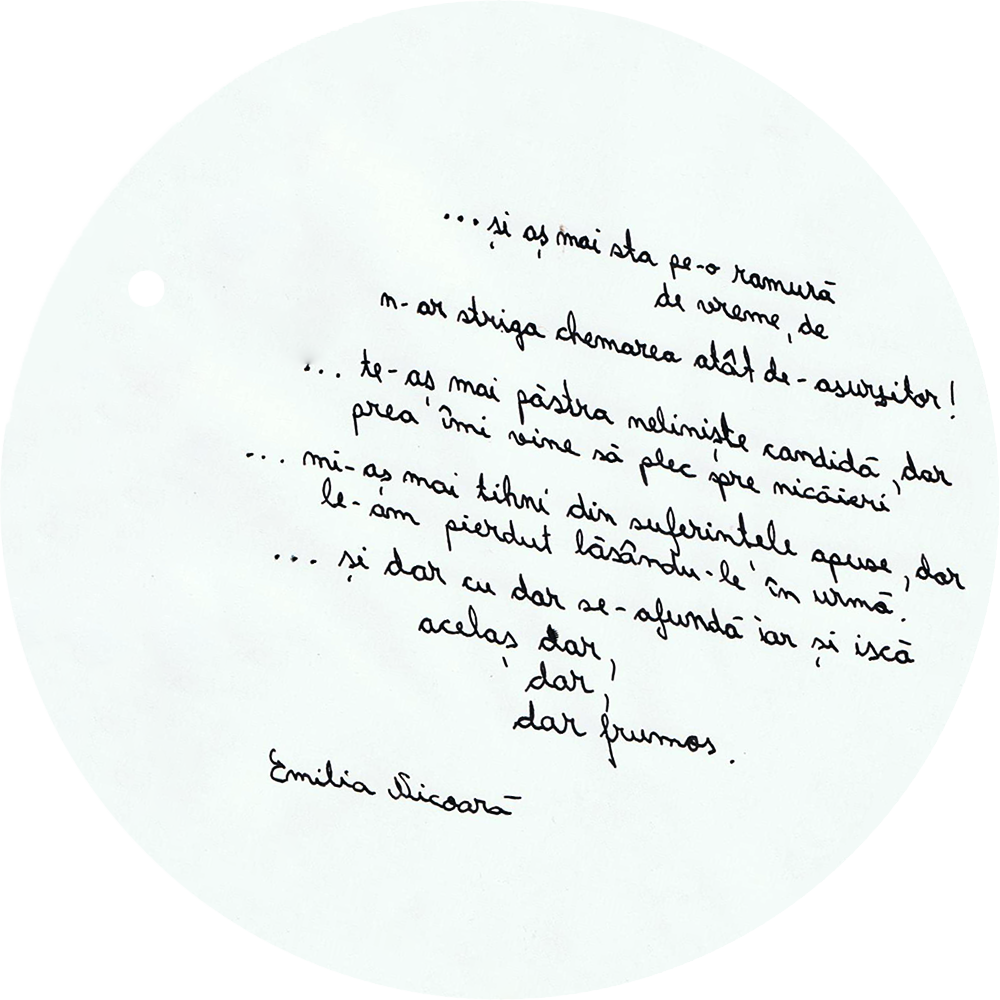 ... și aș mai sta pe-o ramură
de vreme, de
n-ar striga chemarea atât de-asurzitor!
... te-aș mai păstra neliniște candidă, dar
prea îmi vine să plec spre nicăieri
... mi-aș mai tihni din suferințele apuse, dar
le-am pierdut lăsându-le în urmă.
... și dar cu dar se-afundă iar și iscă
acelaș dar,
dar,
dar frumos.
Emilia Nicoară